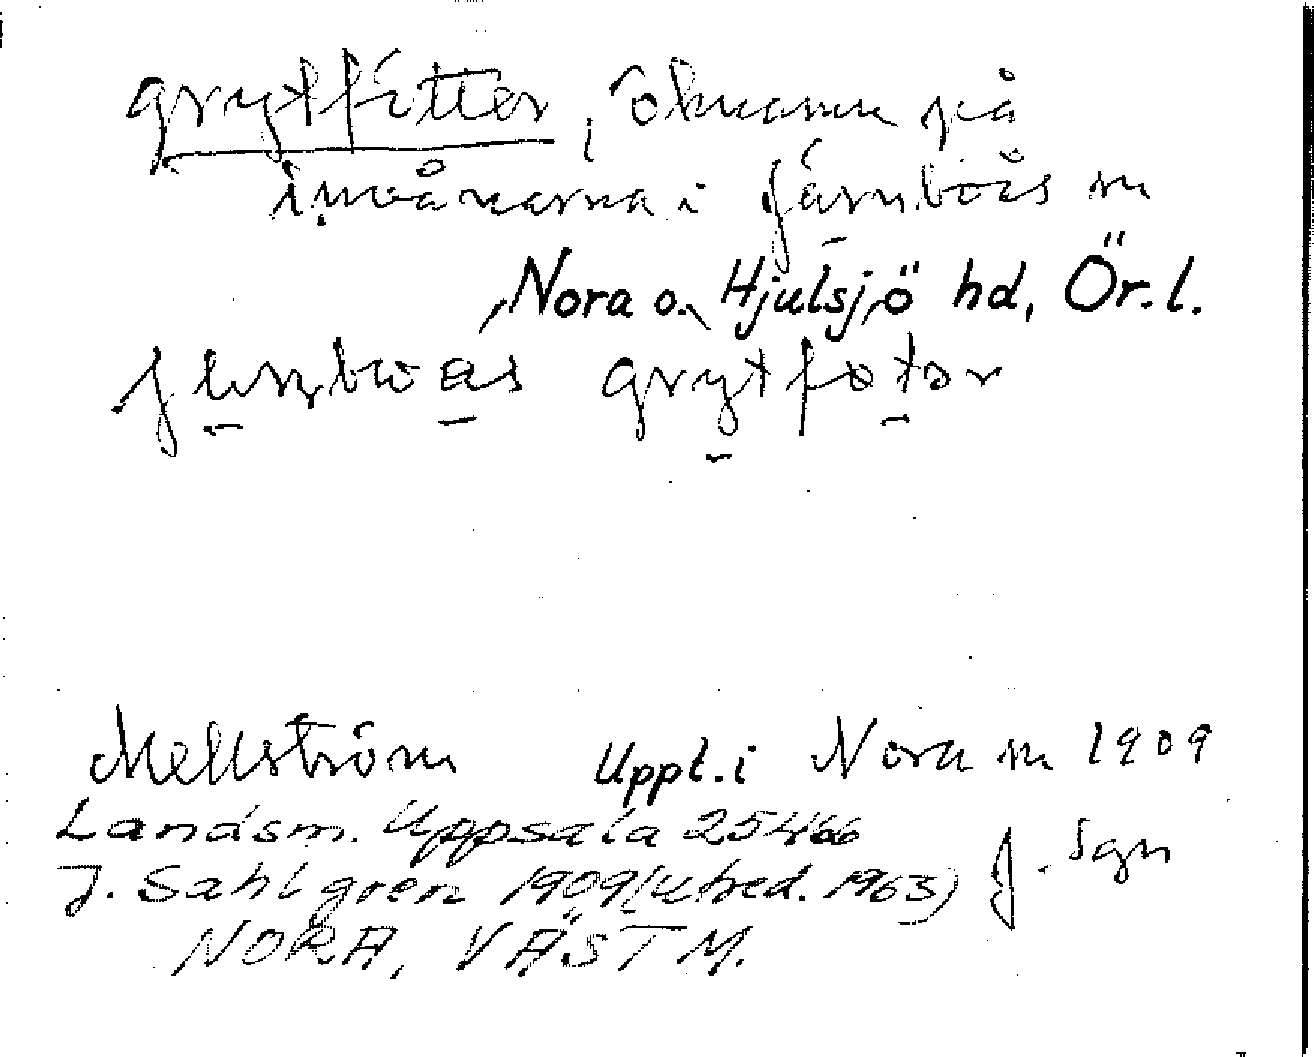 grytfötter, öknamn på
invånarna i Järnboås sn
Nora o. Hjulsjö hd, Ör. l.
grytfotor
Mellström Uppt. i Nora sn 1909
Landsm. Uppsala 25466
J. Sahlgren 1909 (utred. 1963) J. Sgn
NORA, VÄSTM.